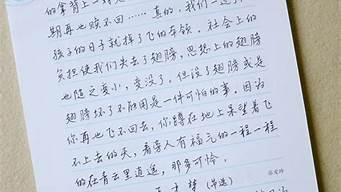 的拿督上一
期再也赎不回……真的,我们一过了
孩子的日子就掉了飞的本领。社会上的
负担使我们失去了翅膀,思想上的翅膀
也随之变小,变没了,但没了翅膀或是
翅膀坏了不能用是一件可怕的事。因为
你再也飞不回去,你蹲在地上呆望着飞
不上去的天,看旁人有福气的一程一程
的在青云里逍遥,那多可怜。